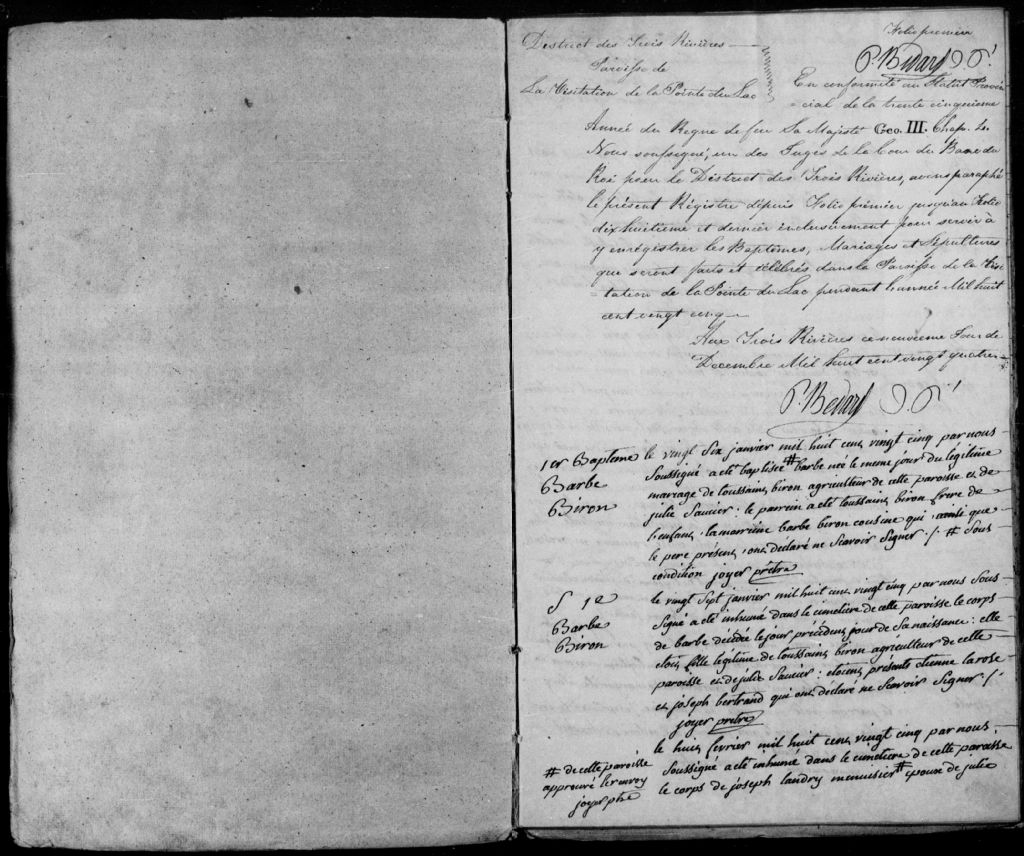 Folio premier
P. Bedard J. P.
District des Trois Rivières
Paroisse de
La Visitation de la Pointe du Lac
En conformité au Statut Provin
=cial de la trente cinquieme
Année du Regne de feu Sa Majesté Geo. III. Chap. 4.
Nous soussigné, un des Juges de la Cour du Banc du
Roi pour le District des Trois Rivières, avons paraphé
le présent Régistre dépuis Folio prémier jusqu'au Folio
dix huitieme et dernier inclusivement pour servir à
y enrégistrer les Baptêmes, Mariages et Sépultures
que seront faits et célébrés dans la Paroisse de la Visi
=tation de la Pointe du Lac pendant l'année Mil huit
cent vingt cinq
Aux Trois Rivières ce neuvieme Jour de
Decembre Mil huit cent vingt quatre
P. Bedard J. P.
1er Bapteme
Barbe
Biron
le vingt Six janvier mil huit cent vingt cinq par nous
Soussigné a eté baptisée # barbe née le meme jour du légitime
mariage de toussaint biron agriculteur de cette paroisse et de
julie Saucier : le parrein a eté toussaint biron frere de
l'enfant, la marreine barbe biron cousine qui, ainsi que
le pere présent, ont declaré ne Scavoir Signer ./. # Sous
condition joyer prêtre
S 1e
Barbe
Biron
le vingt Sept janvier mil huit cent vingt cinq par nous Sous
Signé a eté inhumé dans le cimetiere de cette paroisse le corps
de barbe décédée le jour précédent, jour de Sa naissance : elle
etoit fille legitime de toussaint biron agriculteur de cette
paroisse et de julie Saucier : etoient présents etienne larose
et joseph bertrand qui ont declaré ne Scavoir Signer ./.
joyer prêtre
# de cette paroisse
approuvé le renvoy
joyer ptre
le huit fevrier mil huit cent vingt cinq par nous
Soussigné a eté inhumé dans le cimetiere de cette paroisse
le corps de joseph landry menuisier # epoux de julie